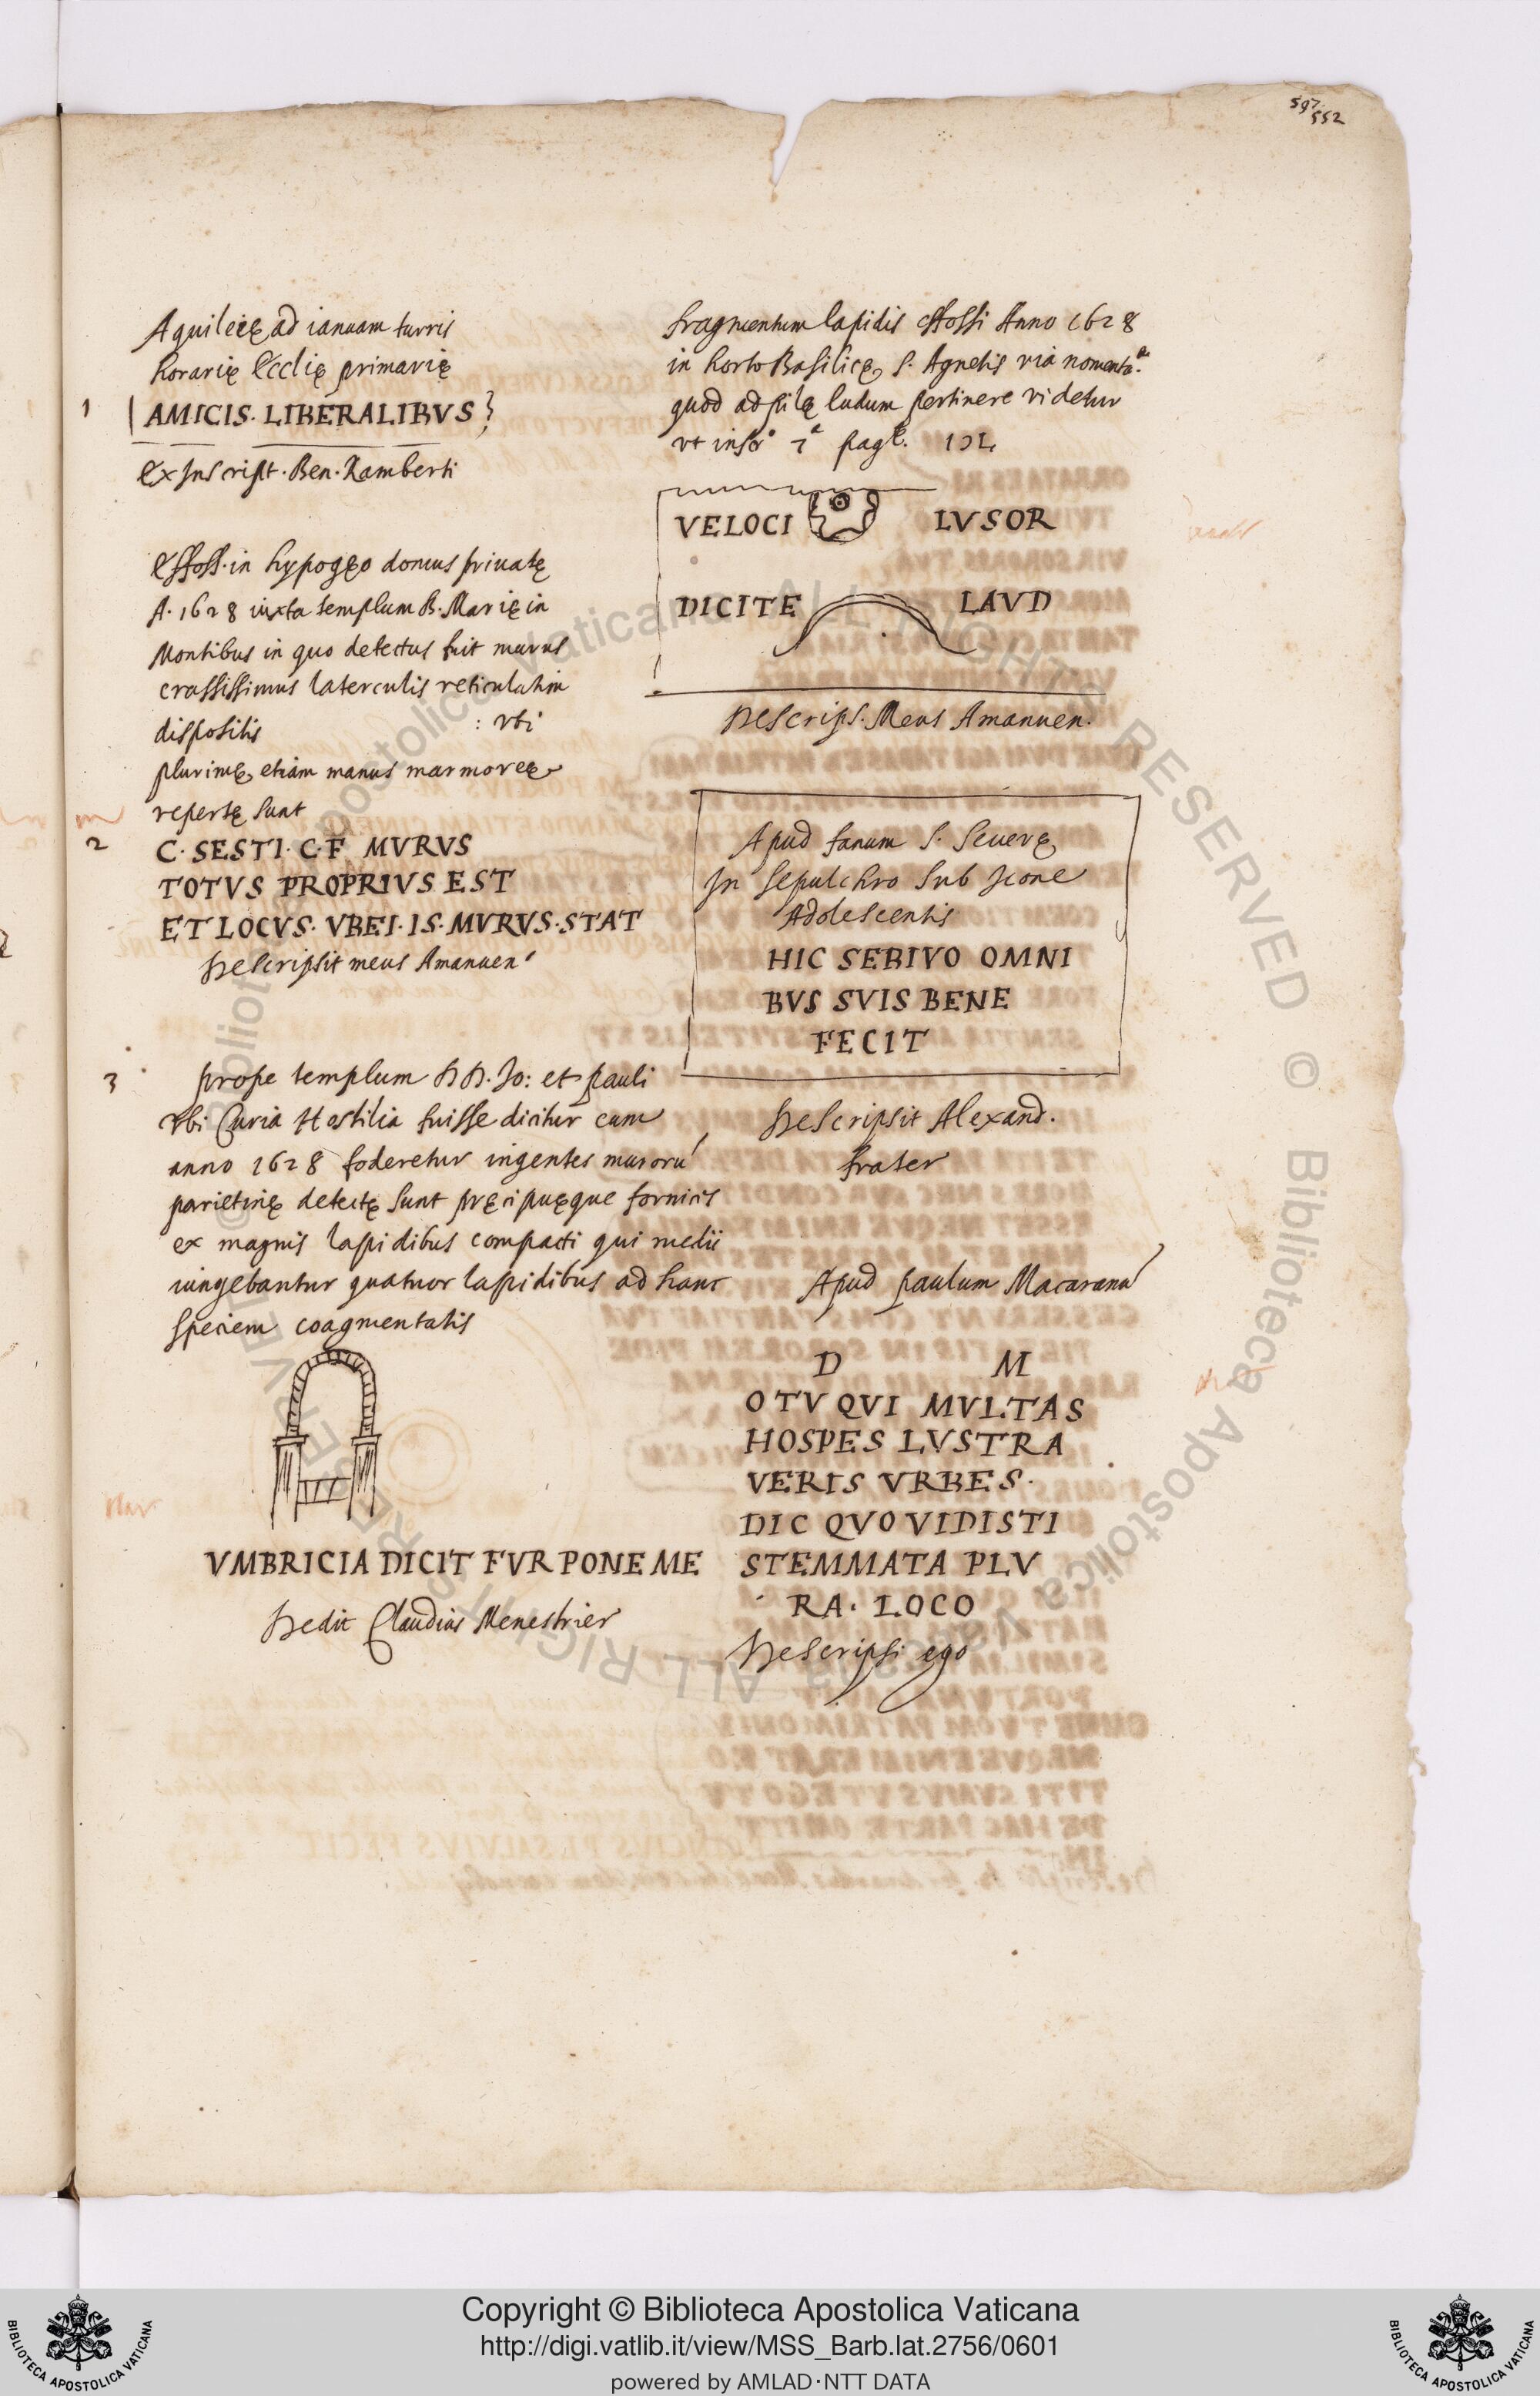 597
552
Aquileię ad ianuam turris
horarię Ecclię primarię
1 AMICIS. LIBERALIBVS
Ex Inscript. Ben. Ramberti
Effoss. in hypogęo domus priuatę
A. 1628 iuxta templum B. Marię in
Montibus in quo detectus fuit murus
crassissimus laterculis reticulatim
dispositis : vbi
plurimę etiam manus marmoreę
repertę sunt
2 C. SESTI. C. F MVRVS
TOTVS PROPRIVS EST
ET LOCVS. VBEI. IS. MVRVS. STAT
Descripsit meus Amanuen
3 prope templum SS. Io: et pauli
vbi Curia Hostilia fuisse dicitur cum
anno 1628 foderetur ingentes muroru
parietinę detectę sunt pręcipuęque fornicis
ex magnis lapidibus compacti qui medii
iungebantur quatuor lapidibus ad hanc
speciem coagmentatis
VMBRICIA DICIT FVR PONE ME
Dedit Claudius Menestrier
fragmentum lapidis effossi Anno 1628
in horto Basilicę S. Agnetis via nomenta.
quod ad pilę ludum pertinere videtur
VELOCI LVSOR
DICITE LAVD
Descrips. Meus Amanuen.
Apud fanum S. Seuerę
In sepulchro sub Icone
Adolescentis
HIC SEBIVO OMNI
BVS SVIS BENE
FECIT
Descripsit Alexand.
frater
Apud paulum Macaranu
D M
O TV QVI MVLTAS
HOSPES LVSTRA
VERIS VRBES.
DIC QVO VIDISTI
STEMMATA PLV
RA. LOCO
Descripsi ego
© Biblioteca Apostolica Vaticana ALL RIGHTS RESERVED
Copyright © Biblioteca Apostolica Vaticana
http://digi.vatlib.it/view/MSS_Barb.lat.2756/0601
powered by AMLAD·NTT DATA
BIBLIOTECA APOSTOLICA VATICANA
BIBLIOTECA APOSTOLICA VATICANA